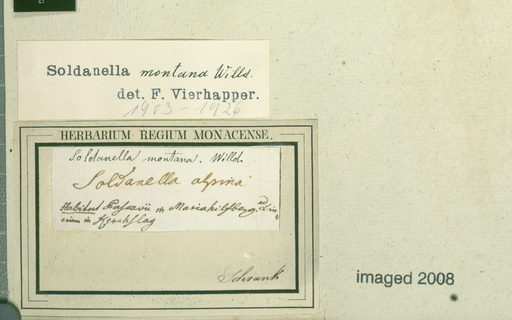 Soldanella montana Willd.
det. F. Vierhapper.
1903-1926
HERBARIUM REGIUM MONACENSE.
Soldanella montana. Willd.
Soldanella alpina
Habitat Passavii in Mariahilfberg. ad Lin
cium in Kerschlag
Schrank
imaged 2008